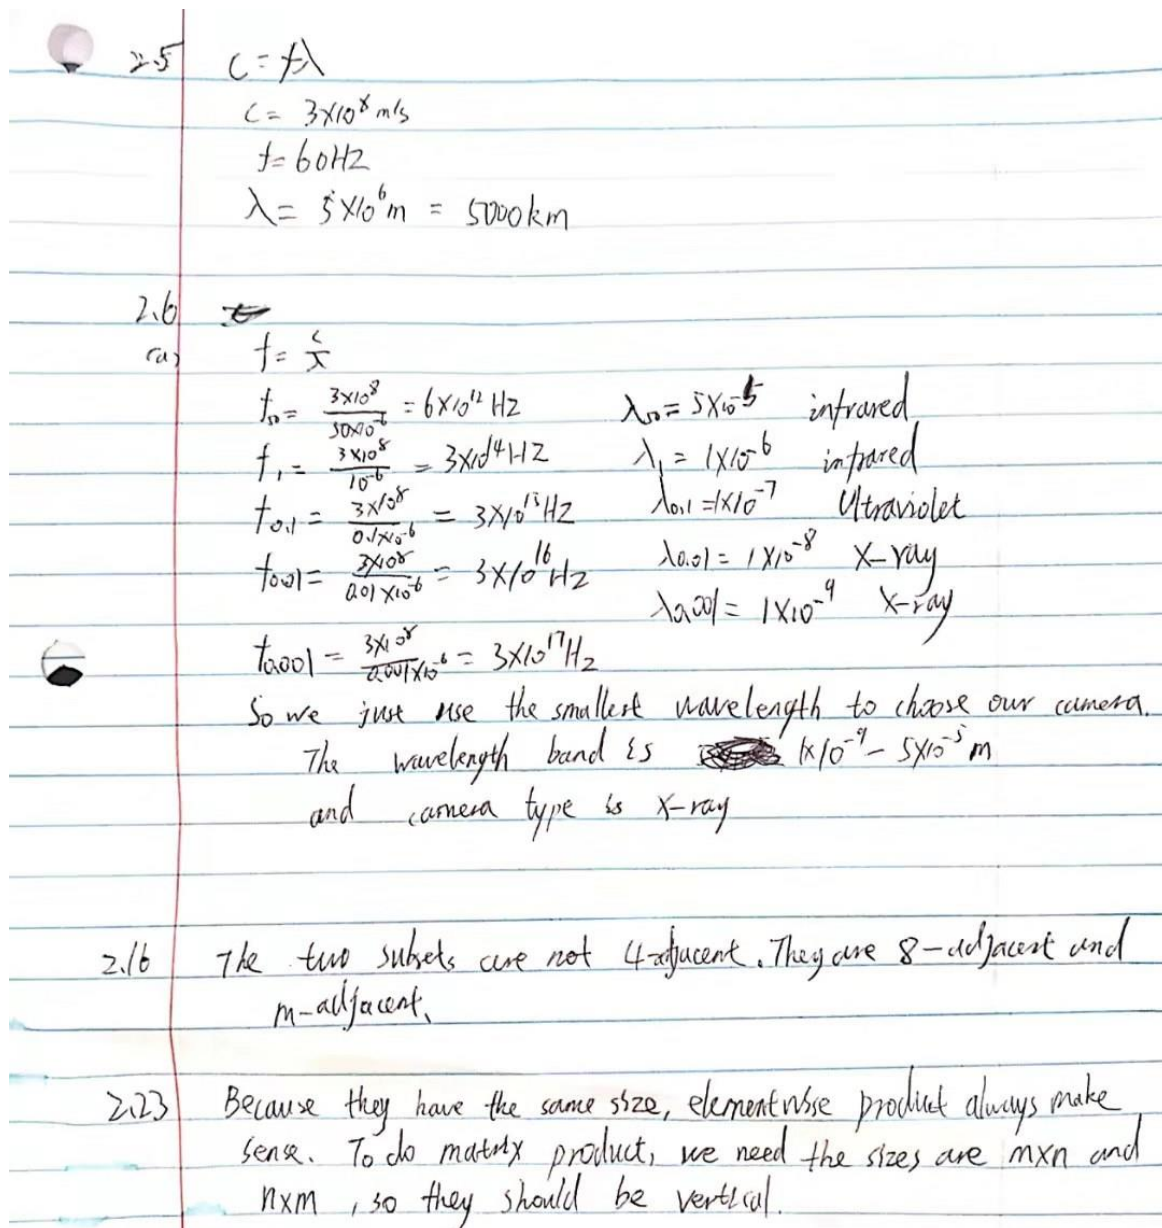 2.5 C = fλ
C = 3×10⁸ m/s
f = 60HZ
λ = 5×10⁶m = 5000km
2.6
(a) f = c/λ
f₅₀ = 3×10⁸/50×10⁻⁶ = 6×10¹² HZ λ₅₀ = 5×10⁻⁵ infrared
f₁ = 3×10⁸/10⁻⁶ = 3×10¹⁴HZ λ₁ = 1×10⁻⁶ infrared
f₀.₁ = 3×10⁸/0.1×10⁻⁶ = 3×10¹⁵HZ λ₀.₁ = 1×10⁻⁷ Ultraviolet
f₀.₀₁ = 3×10⁸/0.01×10⁻⁶ = 3×10¹⁶Hz λ₀.₀₁ = 1×10⁻⁸ X-ray
λ₀.₀₀₁ = 1×10⁻⁹ X-ray
f₀.₀₀₁ = 3×10⁸/0.001×10⁻⁶ = 3×10¹⁷Hz
So we just use the smallest wavelength to choose our camera.
The wavelength band is 1×10⁻⁹ - 5×10⁻⁵ m
and camera type is X-ray
2.16 The two subsets are not 4-adjacent. They are 8-adjacent and
m-adjacent.
2.23 Because they have the same size, elementwise product always make
sense. To do matrix product, we need the sizes are m×n and
n×m, so they should be vertical.